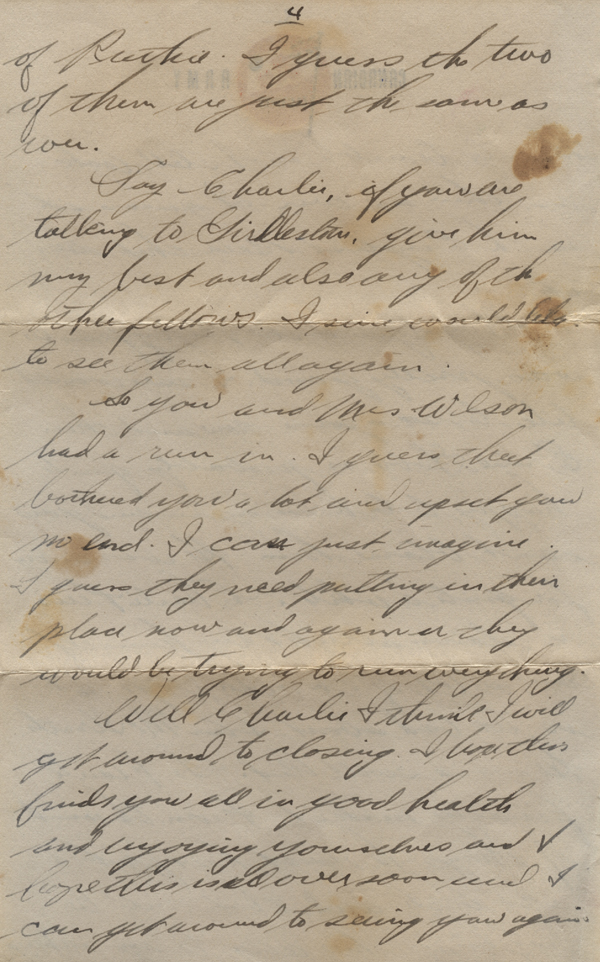 4
of Ruthie. I guess the two
of them are just the same as
ever.
Say Charlie, if you are
talking to Girdleston, give him
my best and also any of the
other fellows. I sure would like
to see them all again.
So you and Mrs Wilson
had a run in. I guess that
bothered you a lot and upset you
no end. I can just imagine.
I guess they need putting in their
place now and again or they
would be trying to run everything.
Well Charlie I think I will
get around to closing. I hope this
finds you all in good health
and enjoying yourselves and I
hope this is all over soon and I
can get around to seeing you again